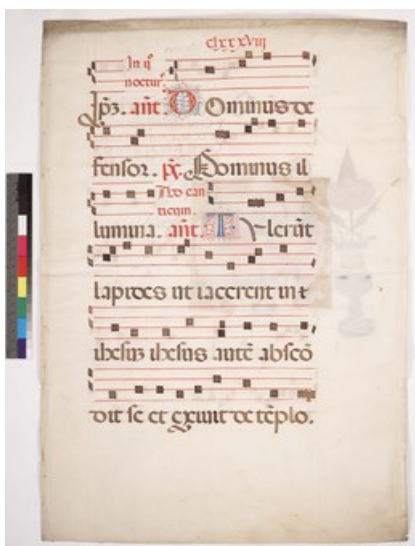 clxxxviii
noctur.
añt. Dominus de
fensor. Dominus il
ticum.
lumina. añt. Tulerūt
lapides ut iacerent in
ihesus autē abscō
dit se et exiuit de tēplo.